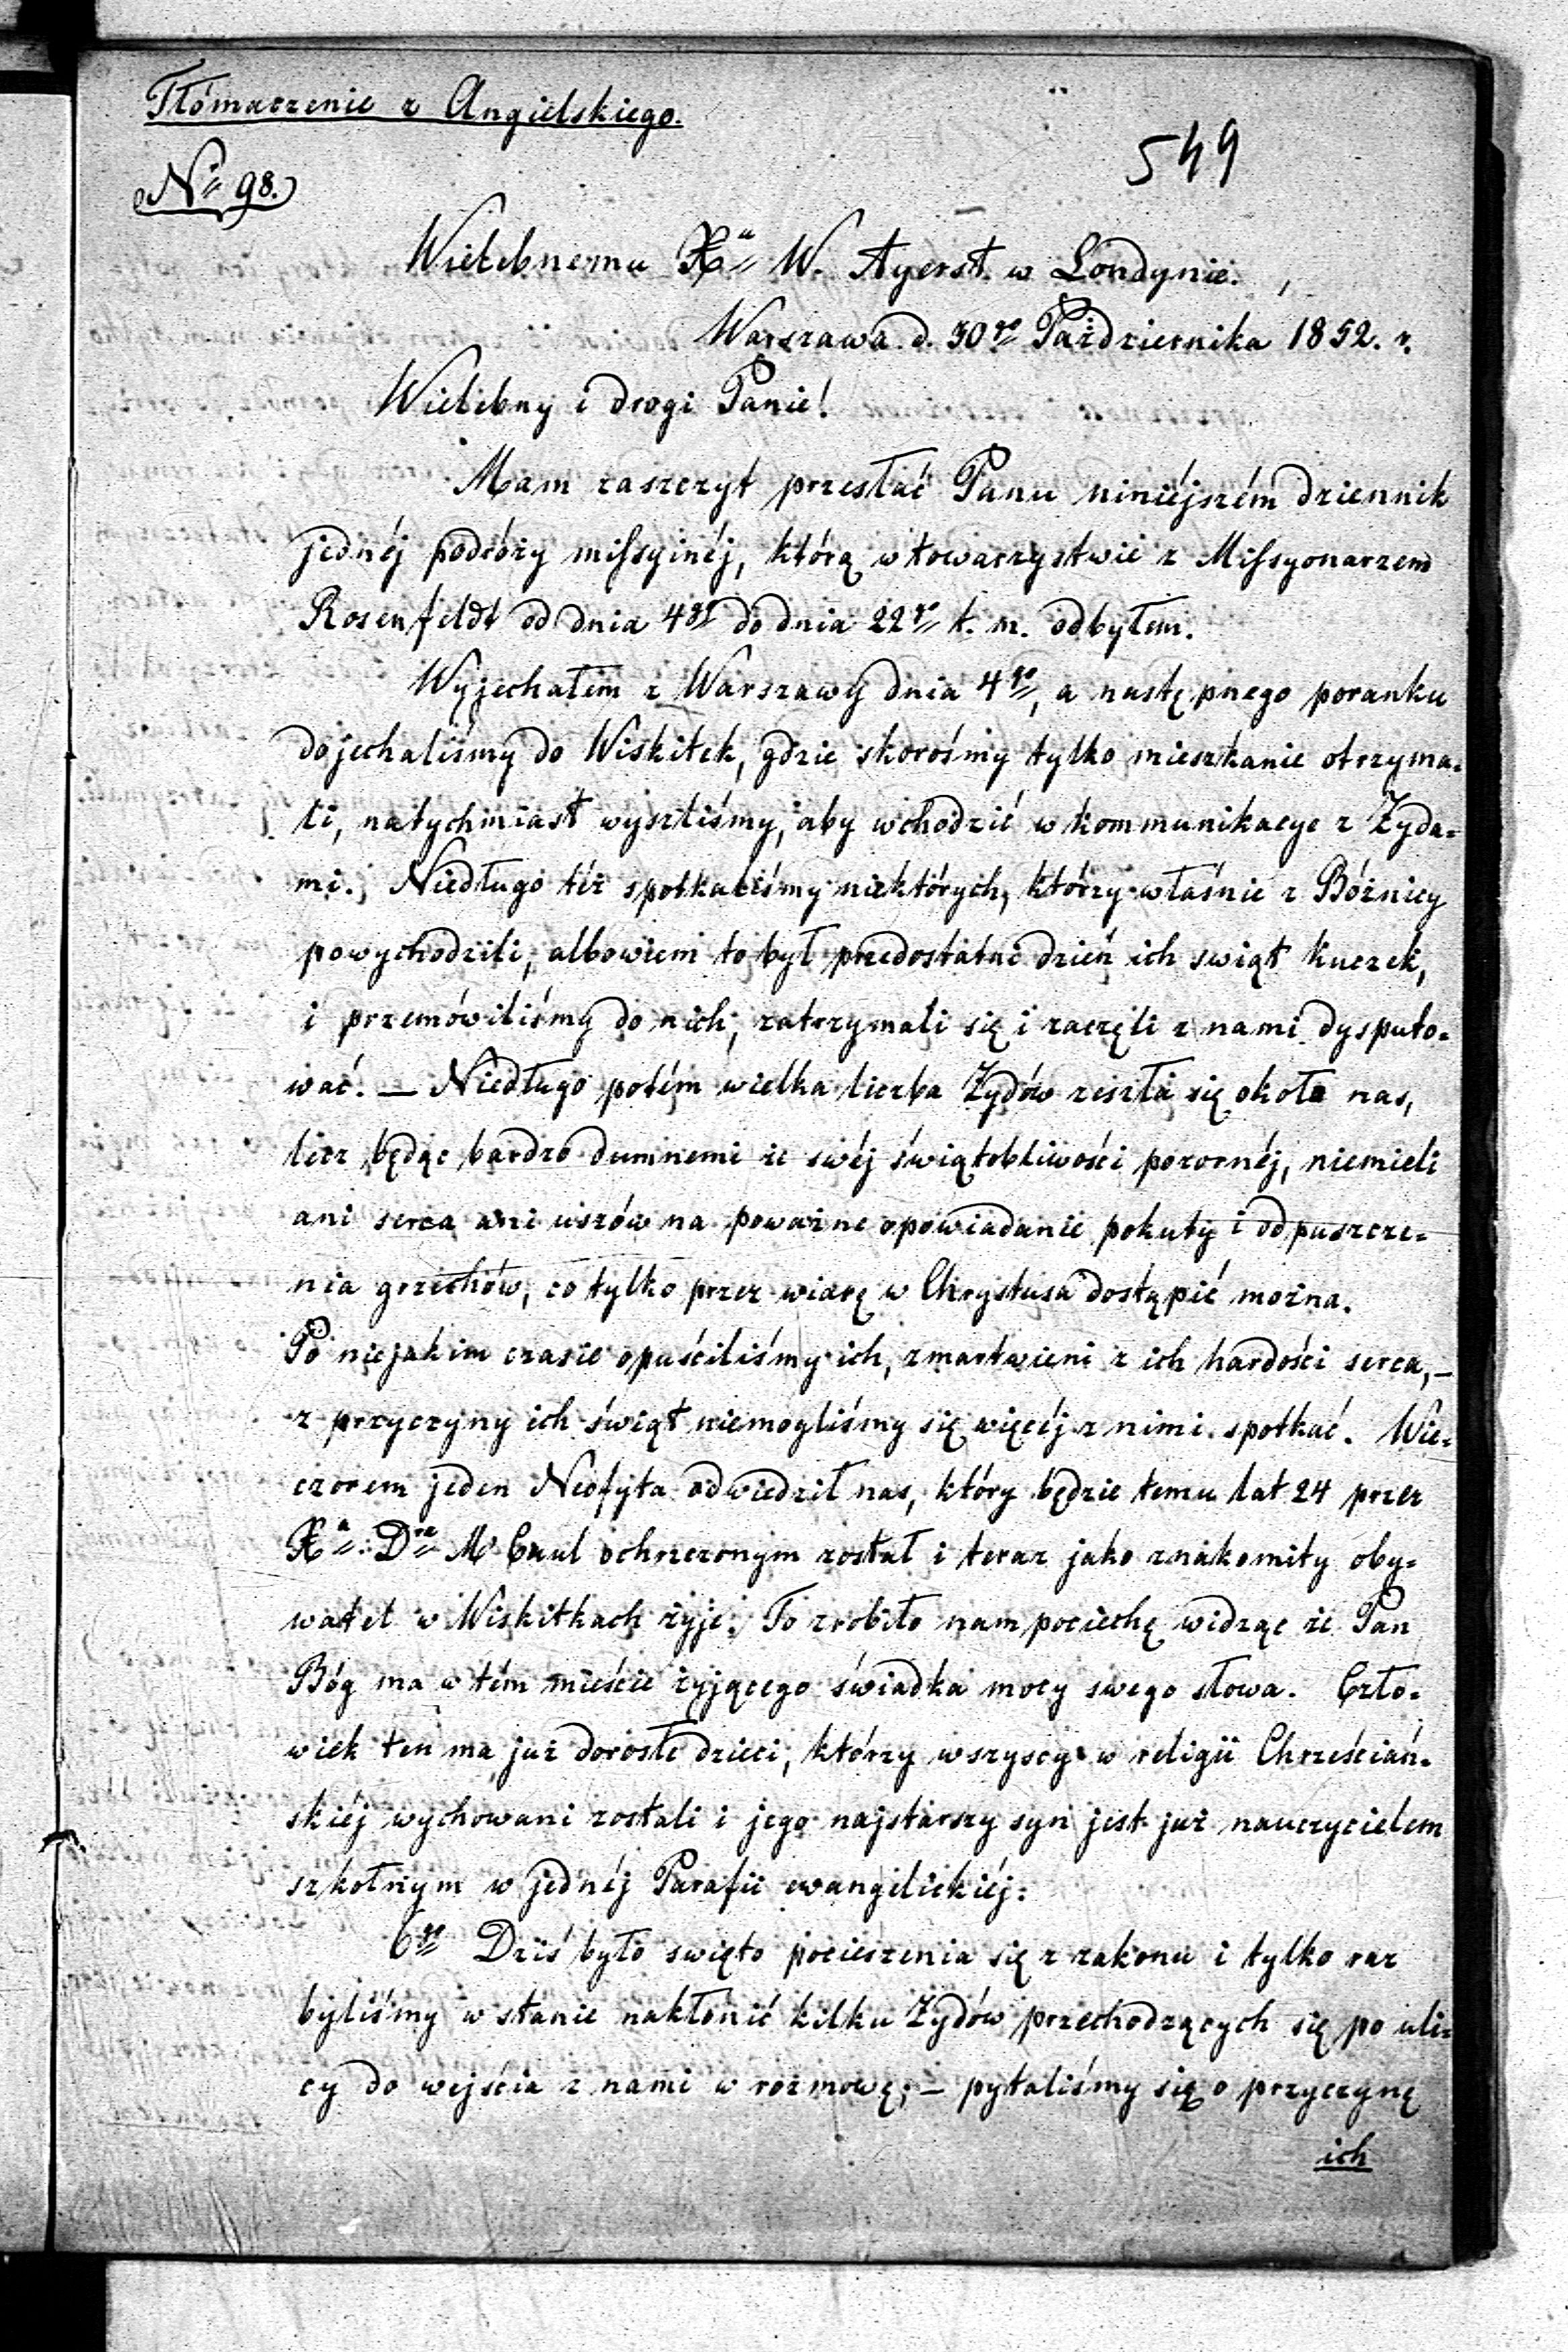 Tłómaczenie z Angielskiego.
549
No 98.
Wielebnemu Xu W. Ayerst w Londynie.
Warszawa d. 30go Października 1852. r.
Wielebny i drogi Panie!
Mam zaszczyt przesłać Panu niniéjszém dziennik
jednéj podróży missyinéj, którą w towarzystwie z Missyonarzem
Rosenfeldt od dnia 4go do dnia 22go t. m. odbyłem.
Wyjechałem z Warszawy dnia 4go, a następnego poranku
dojechaliśmy do Wiskitek, gdzie skorośmy tylko mieszkanie otrzyma-
li, natychmiast wyszliśmy, aby wchodzić w kommunikacye z Żyda-
mi. Niedługo téż spotkaliśmy niektórych, którzy właśnie z Bóżnicy
powychodzili, albowiem to był przedostatni dzień ich swiąt kuczek,
i przemówiliśmy do nich, zatrzymali się i zaczęli z nami dysputo-
wać. — Niedługo potém wielka liczba Żydów zeszła się około nas,
lecz będąc bardzo dumnemi ze swéj świątobliwości pozornéj, niemieli
ani serca ani uszów na poważne opowiadanie pokuty i odpuszcze-
nia grzechów, co tylko przez wiarę w Chrystusa dostąpić można.
Po niejakim czasie opuściliśmy ich, zmartwieni z ich hardości serca, —
z przyczyny ich świąt niemogliśmy się więcéj z nimi spotkać. Wie-
czorem jeden Neofyta odwiedził nas, który będzie temu lat 24 przez
Xa Dra Mc Caul ochrzczonym został i teraz jako znakomity oby-
watel w Wiskitkach żyje. To zrobiło nam pociechę widząc że Pan
Bóg ma w tém mieście żyjącego świadka mocy swego słowa. Czło-
wiek ten ma już dorosłe dzieci, którzy wszyscy w religii Chrześciań-
skiéj wychowani zostali i jego najstarszy syn jest już nauczycielem
szkołnym w jednéj Parafii ewangelickiéj.
6go Dziś było swięto pocieszenia się z zakonu i tylko raz
byliśmy w stanie nakłonić kilku Żydów przechodzących się po uli-
cy do wejścia z nami w rozmowę; — pytaliśmy się o przyczynę
ich